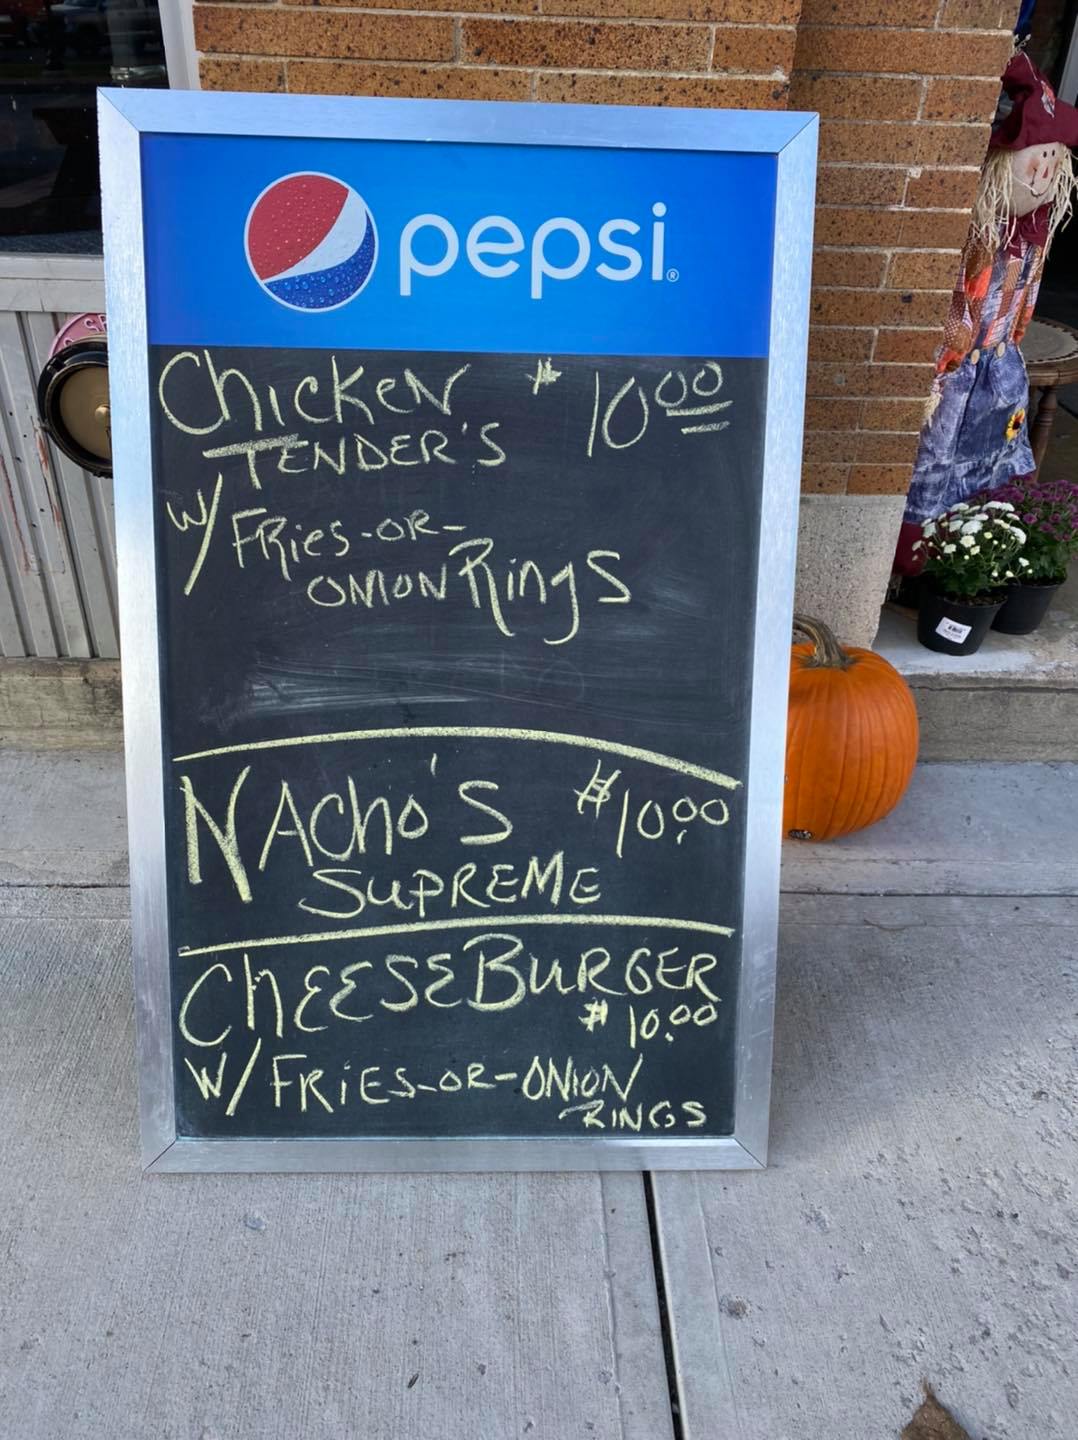 pepsi®
Chicken $10.00
TENDER'S
W/ FRies-OR-
ONION Rings
NAcho's $10.00
SUPREME
ChEESEBURGER
$10.00
W/ FRiES-OR-ONION
RINGS